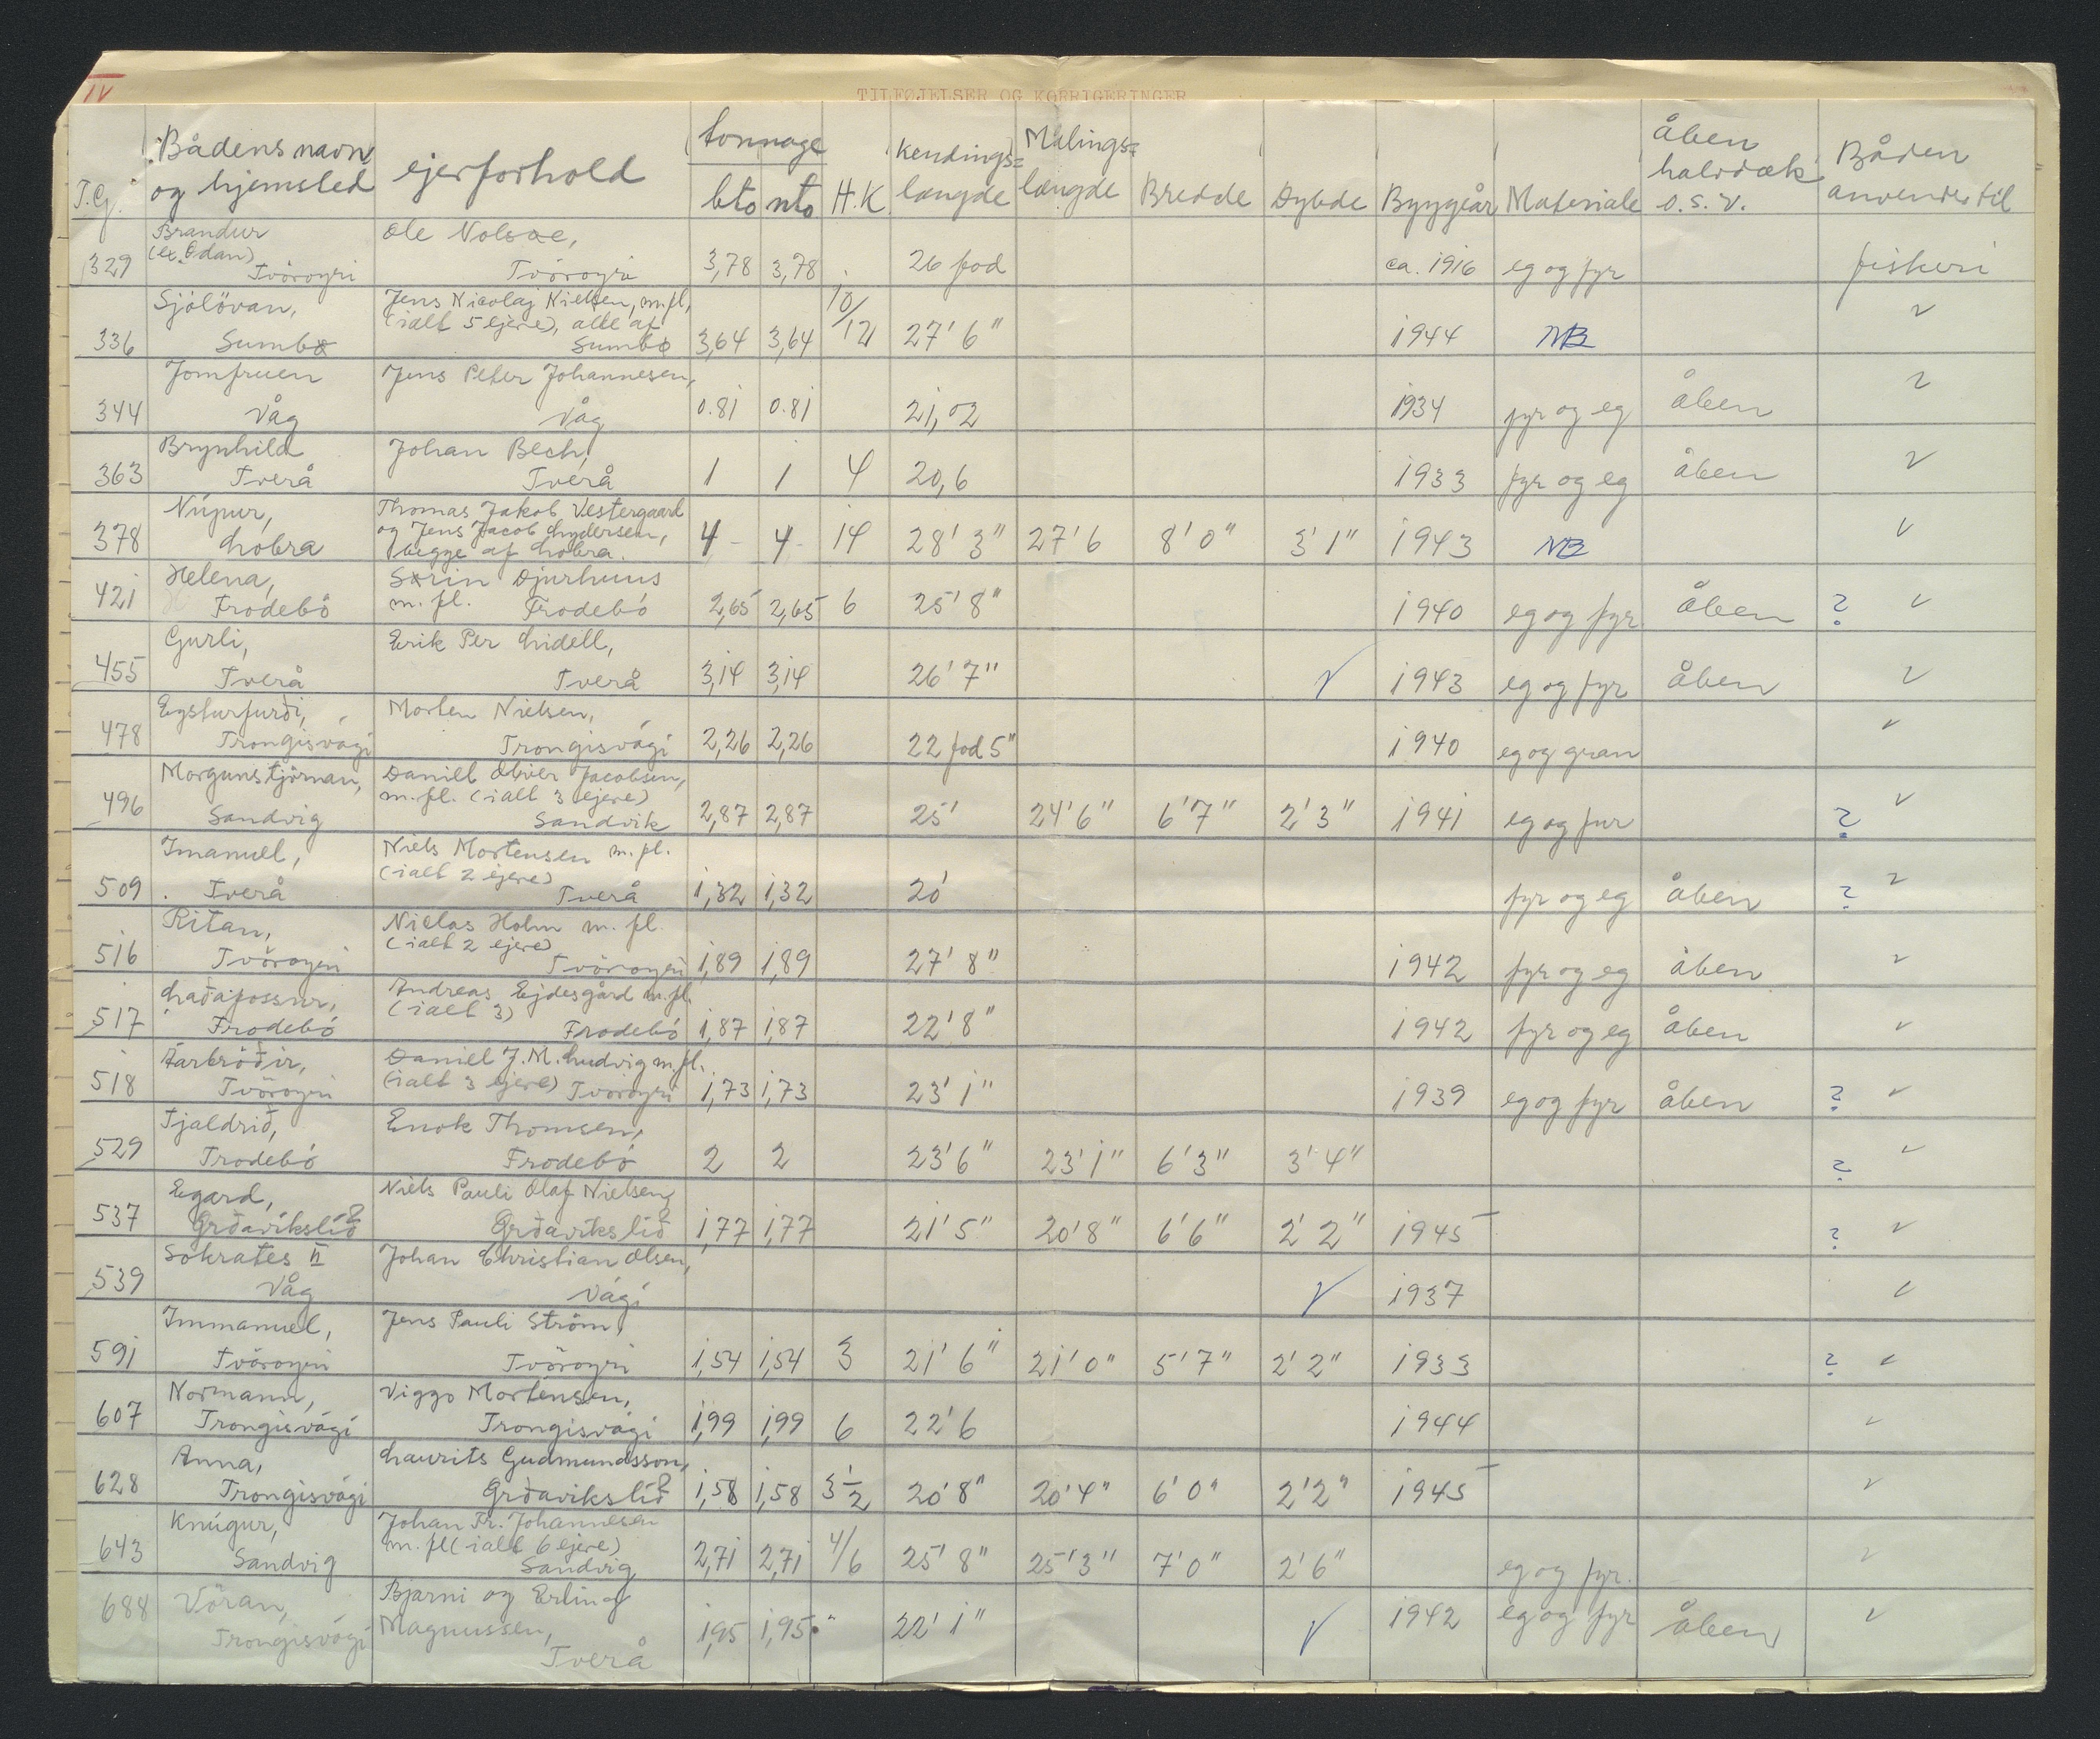 IV
TILFØJELSER OG KORRIGERINGER
T.G. Bådens navn og hjemsted ejerforhold tonnage bto nto H.K kendings= længde Målings= længde Bredde Dybde Byggeår Materiale åben halvdæk o.s.v. Båden anvendes til
Brandur Ole Nolsøe,
329 (ex. Ødan) Tvöroyri Tvöroyri 3,78 3,78 26 fod ca. 1916 eg og fyr fiskeri
Sjólövan, Jens Nicolaj Nielsen, m.fl,
(ialt 5 ejere), alle af
336 Sumbø Sumbø 3,64 3,64 10/12 27' 6" 1944 NB "
Jomfruen Jens Peter Johannesen,
344 Våg Våg 0.81 0.81 21,02 1934 fyr og eg åben "
Brynhild Johan Bech,
363 Tverå Tverå 1 1 4 20,6 1933 fyr og eg åben "
Núpur, Thomas Jakob Vestergaard
og Jens Jacob Lydersen,
378 Lobra begge af Lobra. 4 - 4 - 14 28' 3" 27' 6 8' 0" 3' 1" 1943 NB "
Helena, Sørin Djurhuus
421 Frodebö m. fl. Frodebö 2,65 2,65 6 25' 8" 1940 eg og fyr åben ? "
Gurli, Erik Per Lidell,
455 Tverå Tverå 3,14 3,14 26' 7" √ 1943 eg og fyr åben "
Eysturfurði, Morten Nielsen,
478 Trongisvági Trongisvági 2,26 2,26 22 fod 5" 1940 eg og gran "
Morgunstjörnan, Daniel Olivier Jacobsen,
m.fl. (ialt 3 ejere)
496 Sandvig Sandvik 2,87 2,87 25' 24' 6" 6' 7" 2' 3" 1941 eg og fur ? "
Imanuel, Niels Mortensen m. fl.
(ialt 2 ejere)
509 Tverå Tverå 1,32 1,32 20' fyr og eg åben ? "
Ritan, Niclas Holm m. fl.
(ialt 2 ejere)
516 Tvöroyri Tvöroyri 1,89 1,89 27' 8" 1942 fyr og eg åben "
Laðafossur, Andreas Ejdesgård m. fl.
(ialt 3)
517 Frodebö Frodebö 1,87 1,87 22' 8" 1942 fyr og eg åben "
Aarbröðir, Daniel J.M. Ludvig m. fl.
518 Tvöroyri (ialt 3 ejere) Tvöroyri 1,73 1,73 23' 1" 1939 eg og fyr åben ? "
Tjaldrið, Enok Thomsen,
529 Frodebö Frodebö 2 2 23' 6" 23' 1" 6' 3" 3' 4" ? "
Egard, Niels Pauli Olaf Nielsen,
537 Grðavíkslíð ? Grðavíkslíð ? 1,77 1,77 21' 5" 20' 8" 6' 6" 2' 2" 1945 ? "
Sokrates II Johan Christian Olsen,
539 Våg Vági √ 1937 "
Immanuel, Jens Pauli Ström,
591 Tvöroyri Tvöroyri 1,54 1,54 3 21' 6" 21' 0" 5' 7" 2' 2" 1933 ? "
Normann, Viggo Mortensen,
607 Trongisvági Trongisvági 1,99 1,99 6 22' 6 1944 "
Anna, Laurits Gudmundsson,
628 Trongisvági Grðavíkslíð ? 1,58 1,58 3 1/2 20' 8" 20' 4" 6' 0" 2' 2" 1945 "
Knúgur, Johan Fr. Johannesen
m. fl (ialt 6 ejere)
643 Sandvig Sandvig 2,71 2,71 4/6 25' 8" 25' 3" 7' 0" 2' 6" eg og fyr. "
688 Vöran, Bjarni og Erling
Trongisvági Magnussen, 1,95 1,95 22' 1" √ 1942 eg og fyr åben "
Tverå